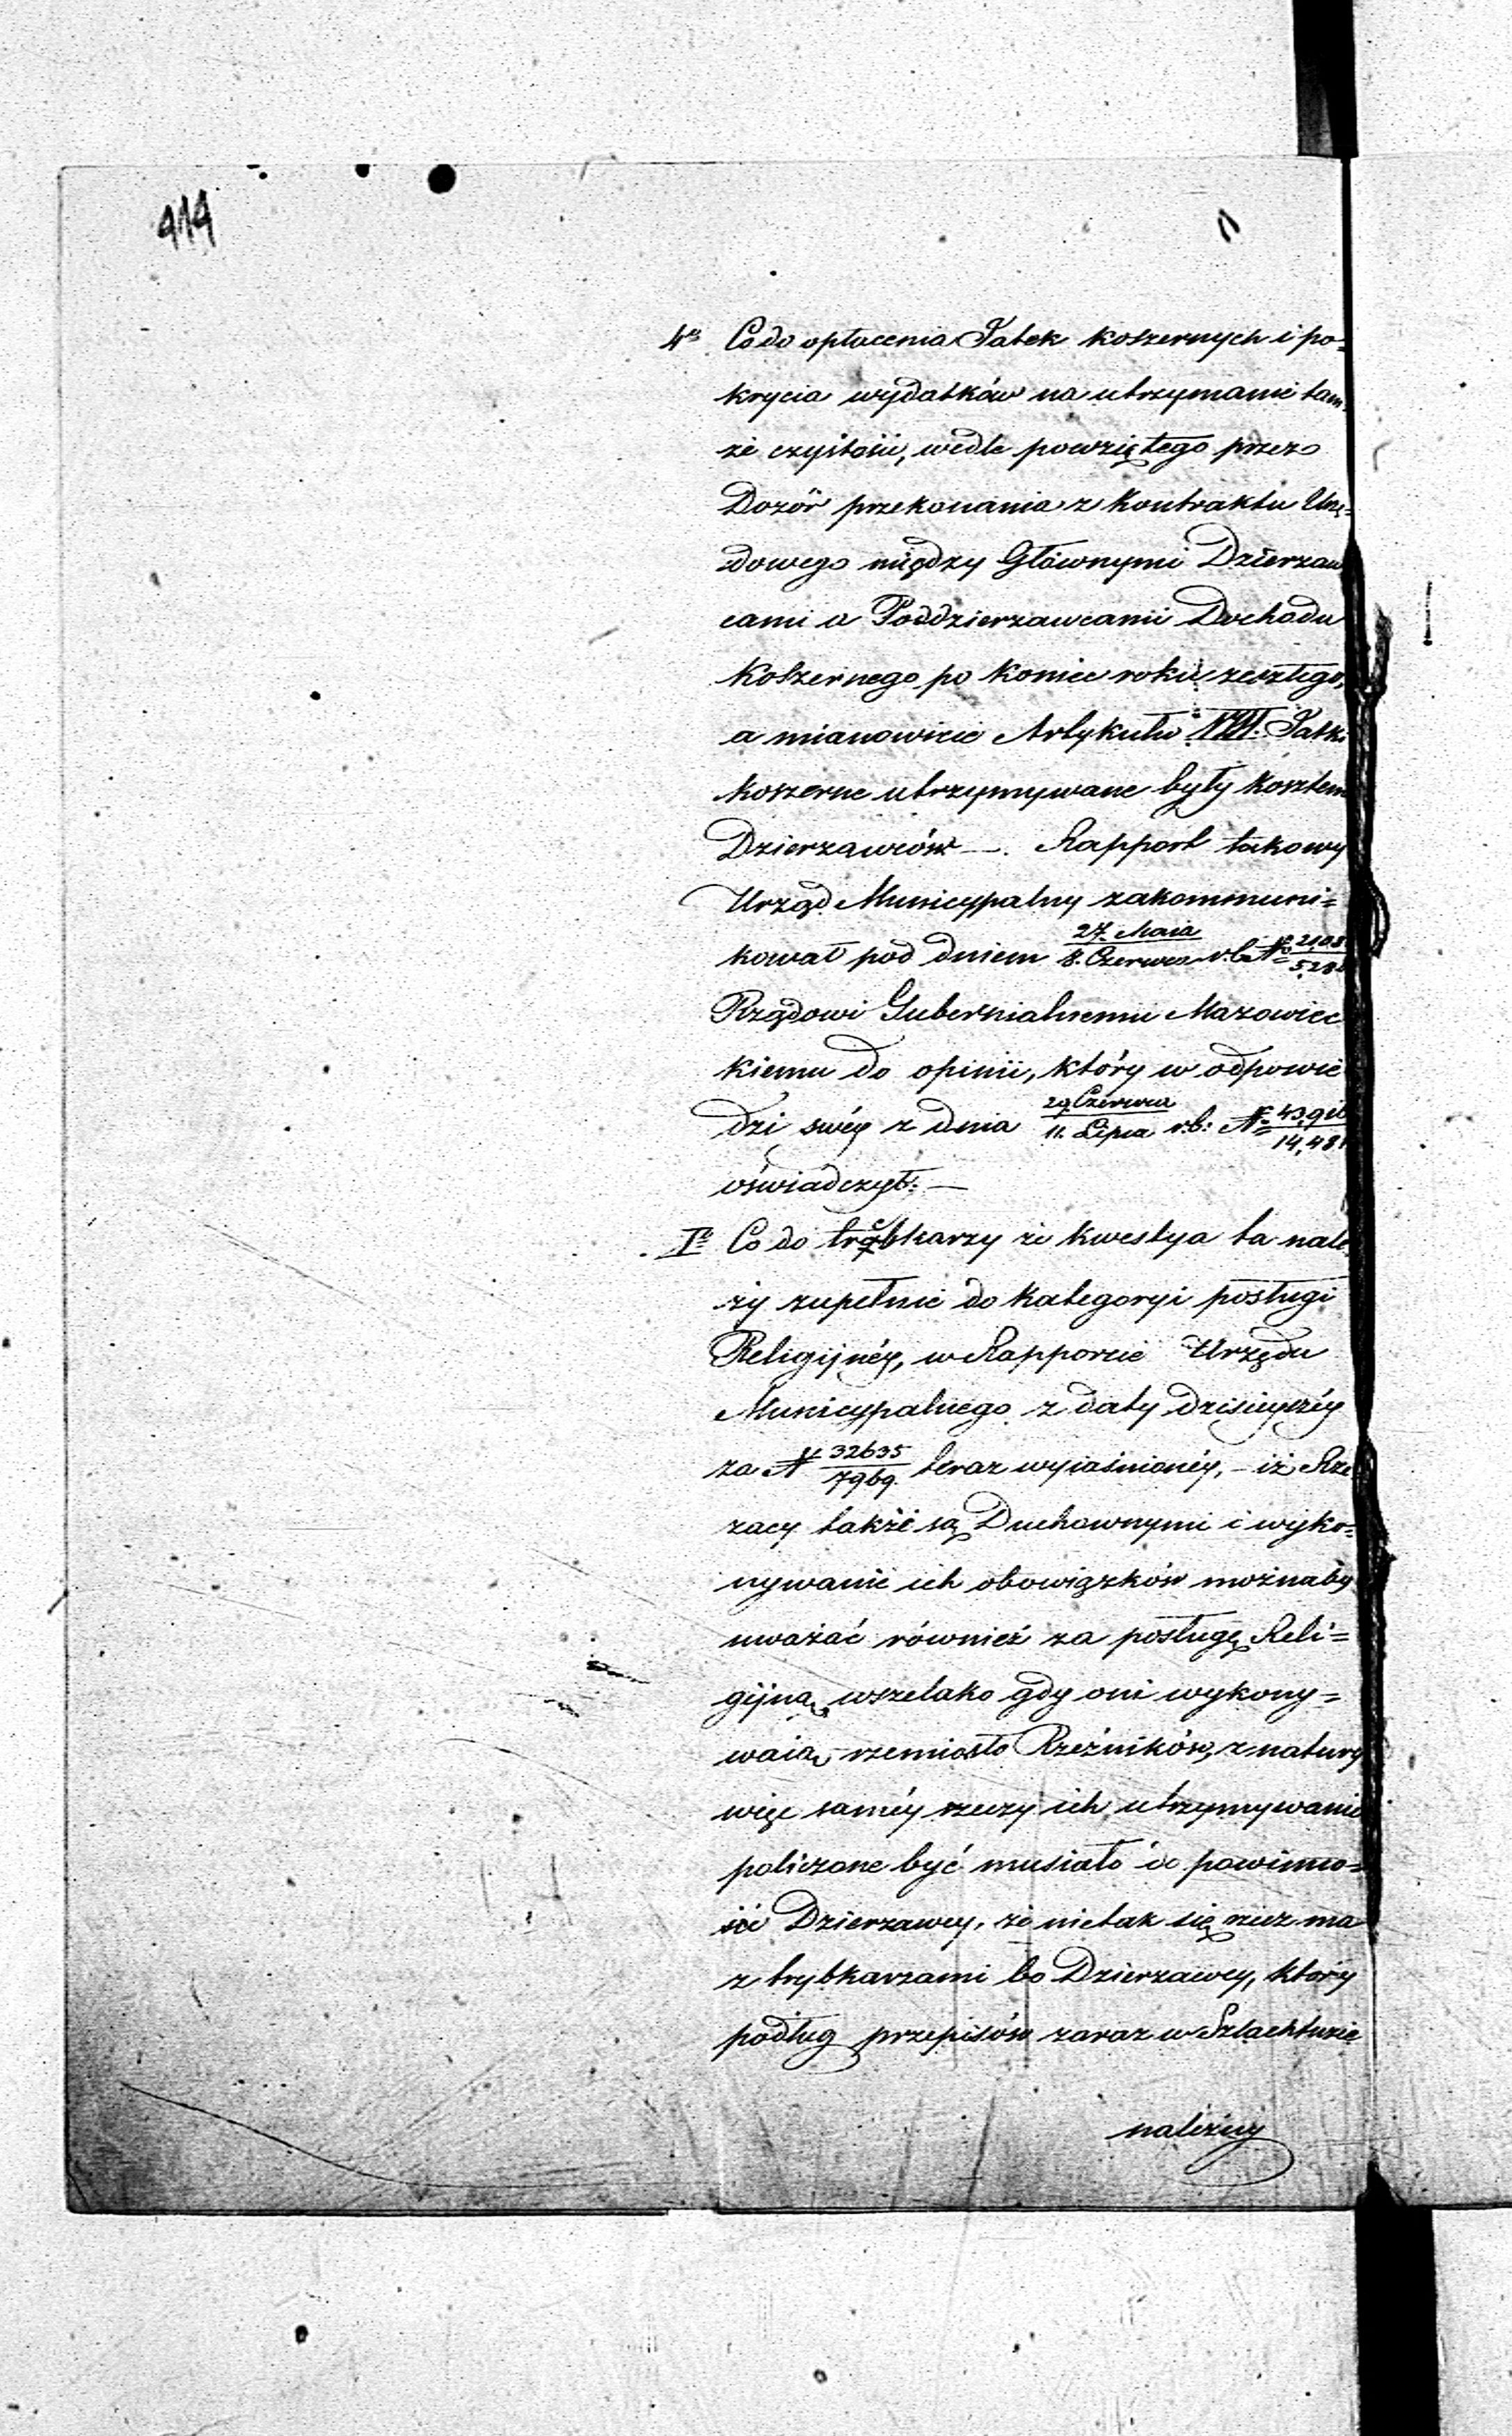 414
4º Co do opłacenia Jatek koszernych i po=
krycia wydatków na utrzymanie tam
że czystości, wedle powziętego przez
Dozór przekonania z Kontraktu Urzę=
dowego między Głównymi Dzierzaw
cami a Poddzierzawcami Dochodu
Koszernego po koniec roku zeszłego,
a mianowicie Artykułu Jatki
koszerne utrzymywane były kosztem
Dzierzawców —. Rapport takowy
Urząd Municypalny zakommuni=
kował pod dniem 27. Maia / 8. Czerwca r.b. Nº
Rządowi Gubernialnemu Mazowiec
kiemu do opinii, który w odpowie
dzi swéy z dnia 29 Czerwca / 11. Lipca r.b: Nº
oświadczył: —
Iº Co do trębkarzy że kwestya ta nale
ży zupełnie do kategoryi posługi
Religijnéy, w Rapporcie Urzędu
Municypalnego z daty dzisieyszéy
za N 32635 / 7969 teraz wyiaśnionéy, – iż Rze
zacy także są Duchownymi i wyko=
nywanie ich obowiązków możnaby
uważać również za posługę Reli=
gijną, wszelako gdy oni wykony=
waią rzemiosło Rzeźników, z natury
więc saméy rzeczy ich utrzymywanie
policzone być musiało do powinno=
ści Dzierzawcy, że nietak się rzecz ma
z trybkarzami bo Dzierzawcy, który
podług przepisów zaraz w Szlachtuzie
należny